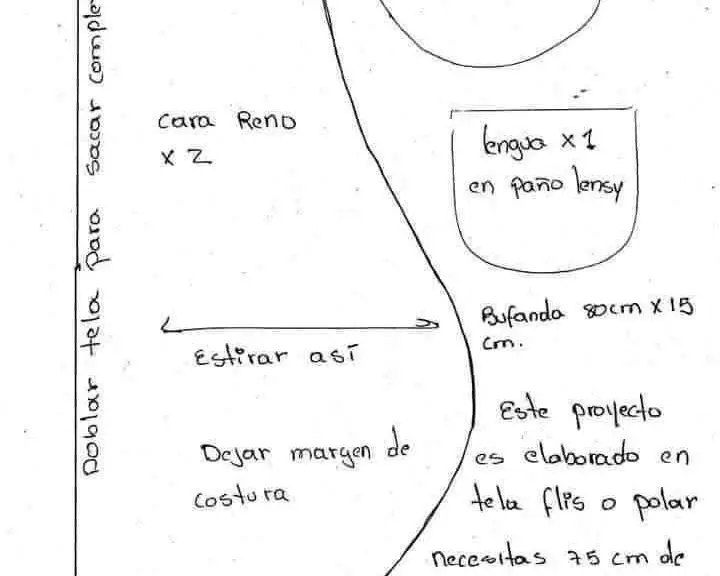 Doblar tela para sacar comple
Cara Reno
x 2
lengua x 1
en paño lensy
Estirar así
Bufanda 80cm x 15
cm.
Dejar margen de
costura
Este proyecto
es elaborado en
tela flis o polar
necesitas 75 cm de